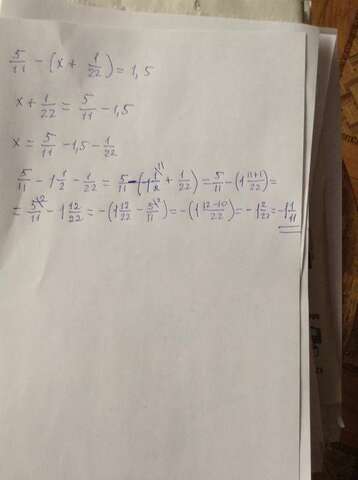 5/11 - (x + 1/22) = 1,5
x + 1/22 = 5/11 - 1,5
x = 5/11 - 1,5 - 1/22
5/11 - 1 1/2 - 1/22 = 5/11 - (1 1/2 \11 + 1/22) = 5/11 - (1 11+1/22) =
= 5/11 \2 - 1 12/22 = -(1 12/22 - 5/11 \2) = -(1 12-10/22) = -1 2/22 = -1 1/11